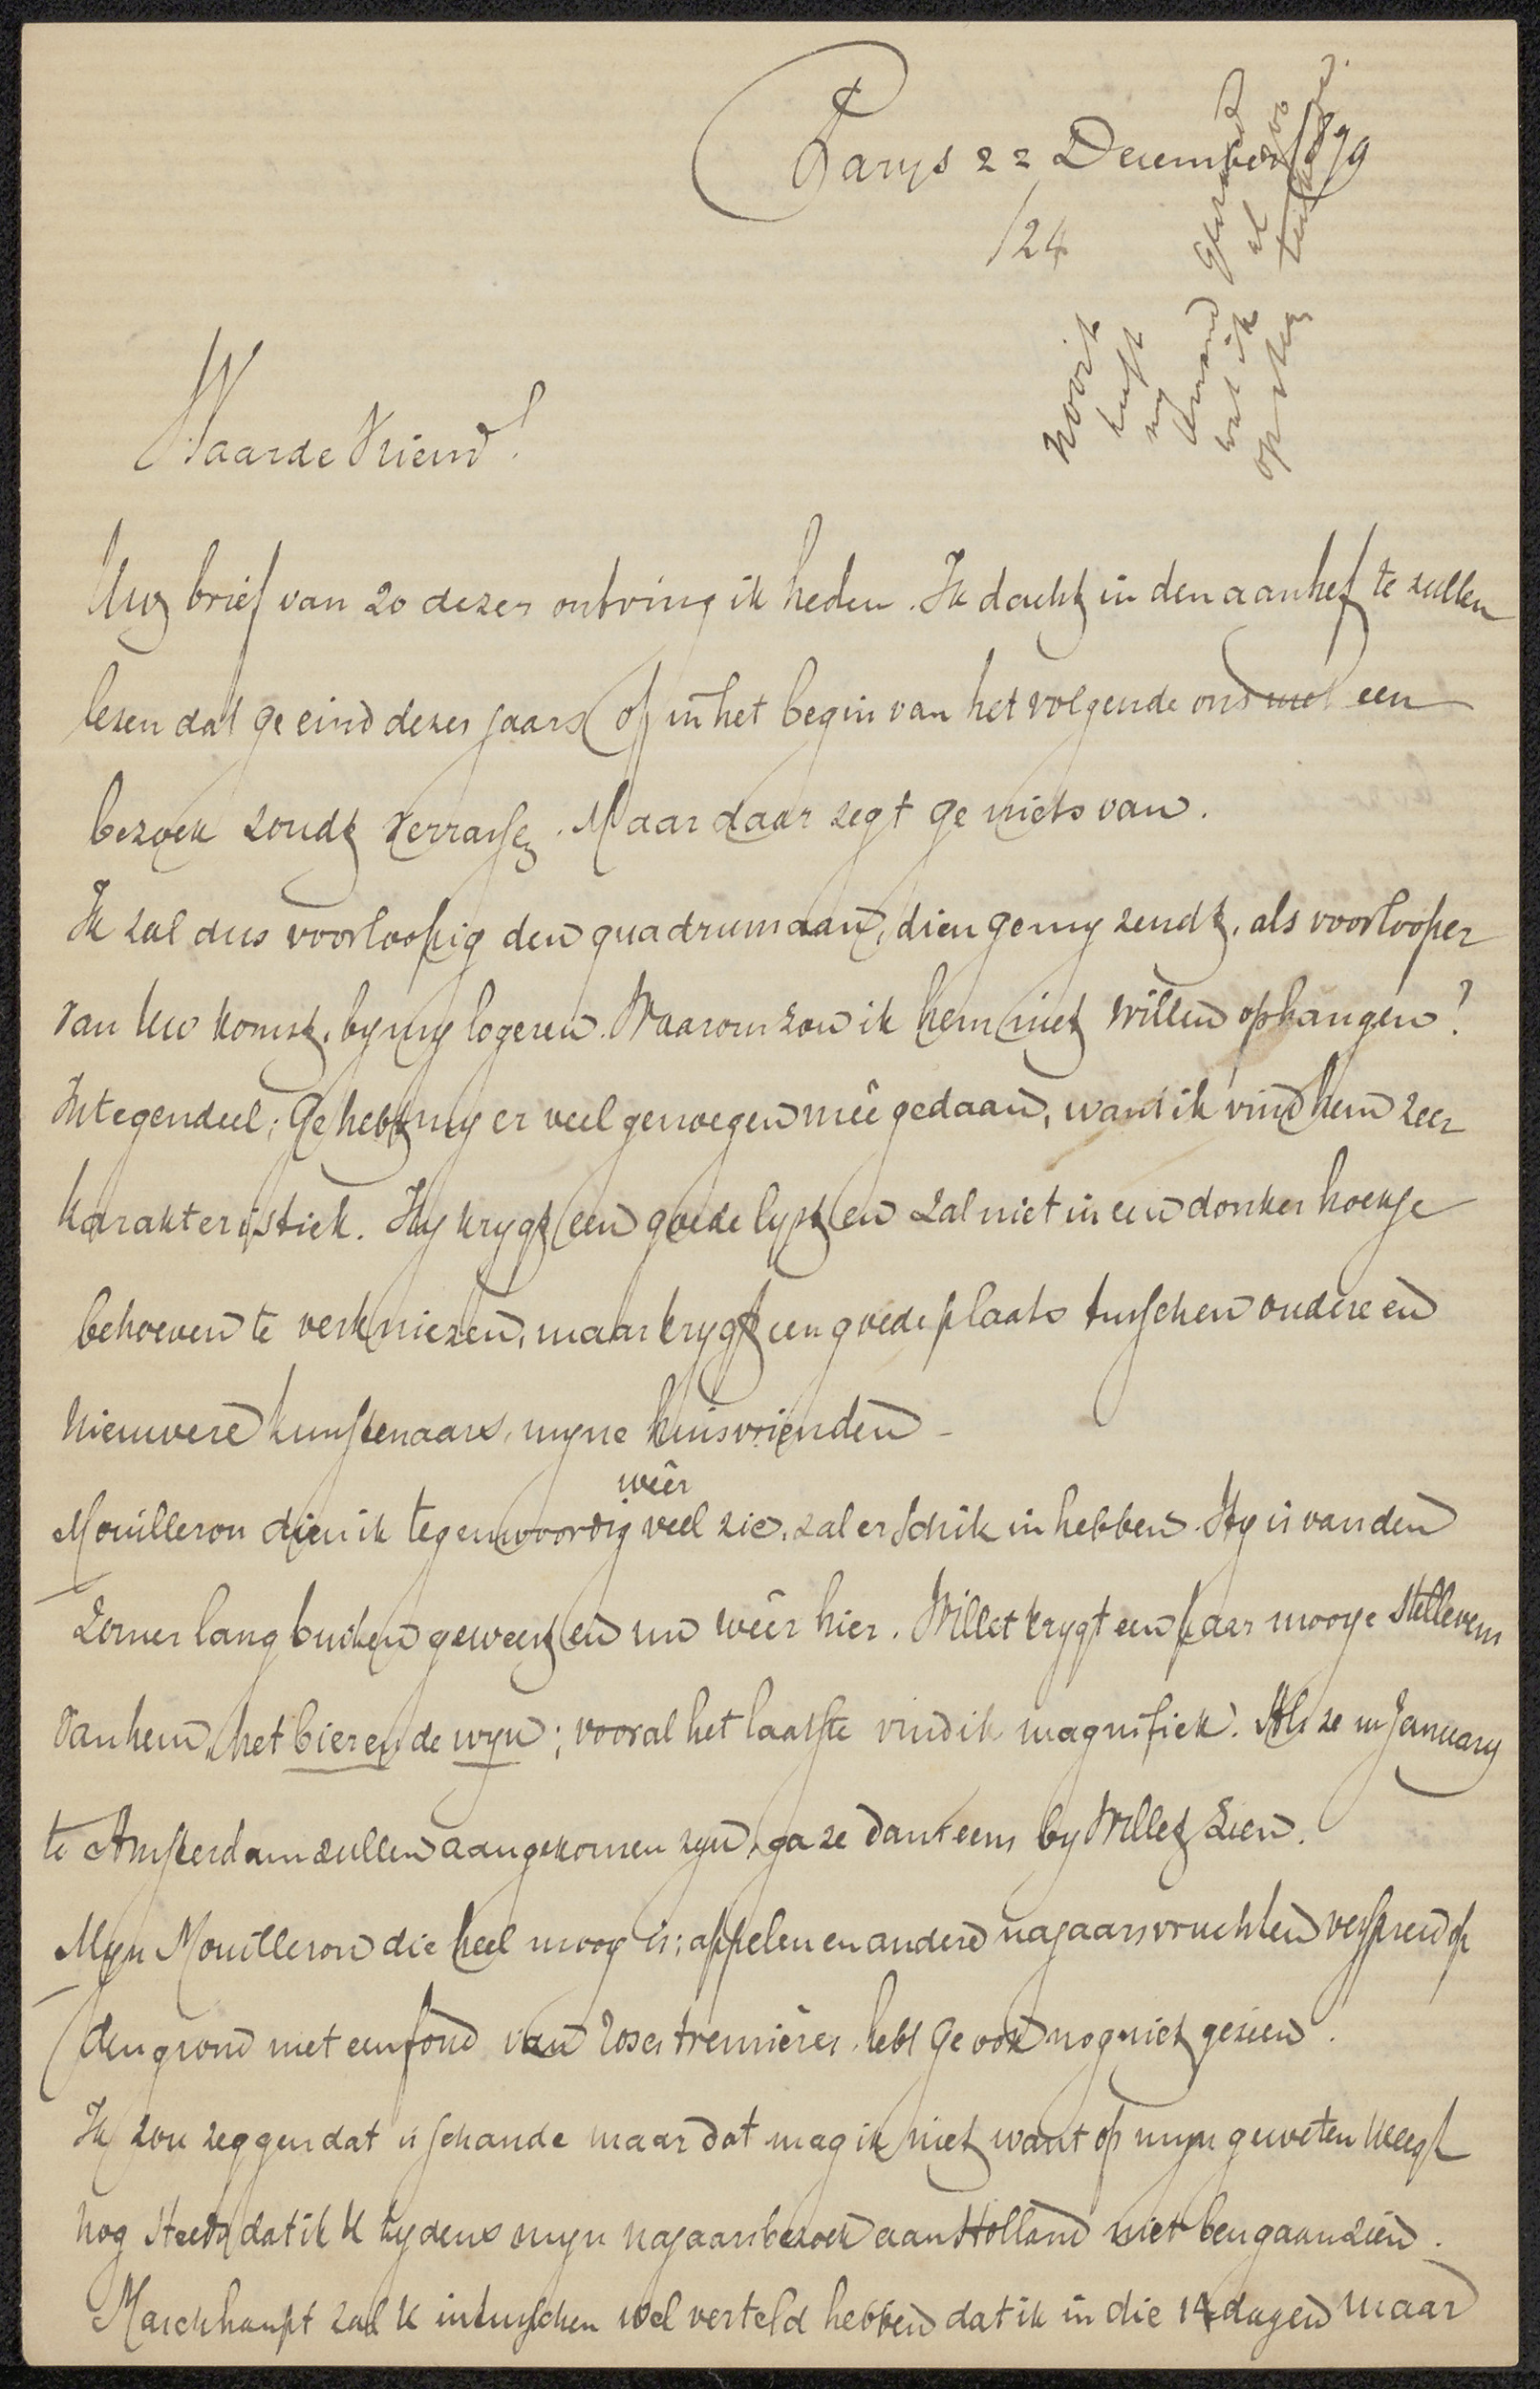 Parys 22 December 1879
/24
nooit
heeft
my
iemand
wat ik
op
Waarde Vriend!
Uwz brief van 20 dezer ontving ik heden. Ik dacht in den aanhef te zullen
lezen dat ge eind dezes jaars of in het begin van het volgende ons met een
bezoek zoudt verrassen. Maar daar zegt ge niets van.
Ik zal dus voorloopig den quadrumaan, dien ge my zendt, als voorlooper
van Uw komst, by my logeren. Waarom zou ik hem niet willen ophangen?
Integendeel; Ge hebt my er veel genoegen meê gedaan, want ik vind hem zeer
karakteristiek. Hy krygt een goede lyst en zal niet in een donker hoekje
behoeven te verkniezen, maar krygt een goede plaats tusschen oudere en
nieuwere kunstenaars, myne huisvrienden -
wêer
Mouilleron dien ik tegenwoordig veel zie, zal er schik in hebben. Hy is van den
Zomer lang buiten geweest en nu wêer hier. Willet krygt een paar mooije stillevens
van hem, het bier en de wyn; vooral het laatste vind ik magnifiek. Als ze in January
te Amsterdam zullen aangekomen zyn, ga ze dan eens by Willet zien.
Myn Mouilleron die heel mooy is; appelen en andere najaarsvruchten verspreid op
den grond met een fond van roses tremières, hebt Ge ook nog niet gezien.
Ik zou zeggen dat is schande maar dat mag ik niet want op myn geweten weegt
nog steeds dat ik U tydens myn najaarsbezoek aan Holland niet ben gaan zien.
Marckhaupt zal U intusschen wel verteld hebben dat ik in die 14 dagen maar